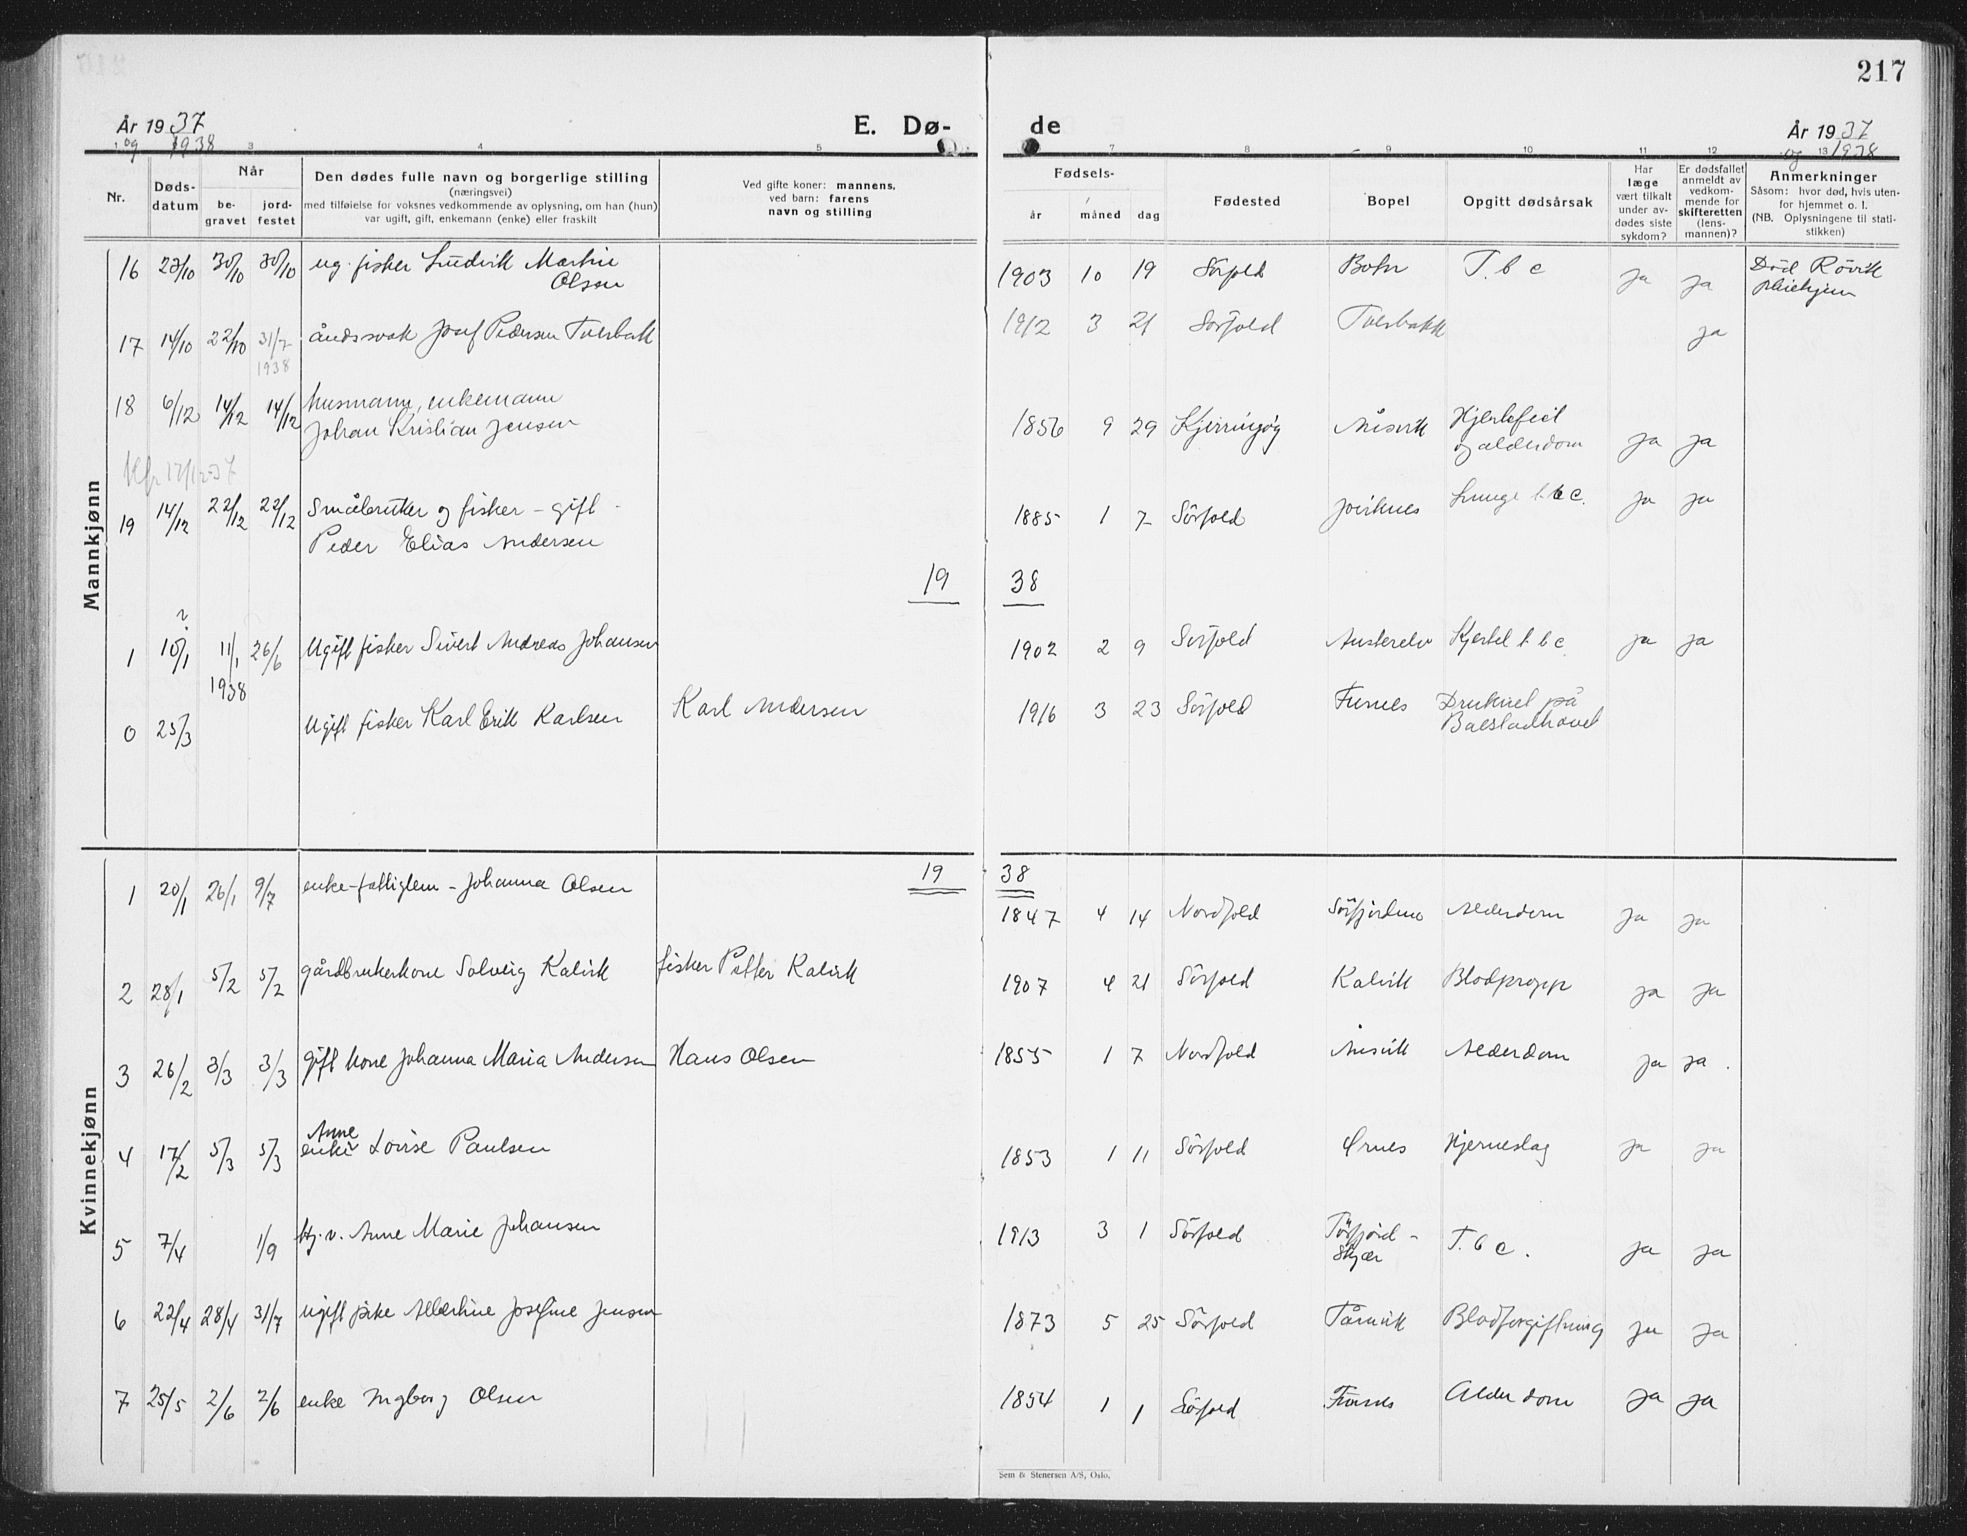 217
År 1937 og 1938
E. Dø-
de
År 1937 og 1938
1 3 4 5 7 8 9 10 11 12 13
Nr.
Døds-
datum
Når
be-
gravet
jord-
festet
Den dødes fulle navn og borgerlige stilling
(næringsvei)
med tilføielse for voksnes vedkommende av oplysning, om han (hun)
var ugift, gift, enkemann (enke) eller fraskilt
Ved gifte koner: mannens,
ved barn: farens
navn og stilling
Fødsels-
år måned dag
Fødested
Bopel
Opgitt dødsårsak
Har
læge
vært tilkalt
under av-
dødes siste
sykdom?
Er dødsfallet
anmeldt av
vedkom-
mende for
skifteretten
(lens-
mannen)?
Anmerkninger
Såsom: hvor død, hvis uten-
for hjemmet o. l.
(NB. Oplysningene til stati-
stikken)
Mannkjønn
16 23/10 30/10 30/10 ug. fisker Ludvik Martin Olsen 1903 10 19 Sörfold T.b c ja ja Död Røvik pleiehjem
17 14/10 22/10 31/7 1938 åndssvak Josef Pedersen Tverbakk 1912 3 21 Sörfold Tverbakk ja
18 6/12 14/12 14/12 husmann, enkemann
Johan Kristian Jensen 1856 9 29 Kjerringøy Åsvik Hjertefeil og alderdom ja ja
17/12-37
19 14/12 22/12 22/12 Småbruker og fisker - gift -
Peder Elias Andersen 1885 1 7 Sörfold Lunge t.b c. ja ja
19 38
1 10/1 ? 11/1 1938 26/6 Ugift fisker Sivert Andreas Johansen 1902 2 9 Sörfold Austerelv Kjertel t b c ja ja
0 25/3 Ugift fisker Karl Erik Karlsen Karl Andersen 1916 3 23 Sörfold Furnes Druknet på Balstadhavet
Kvinnekjønn
19 38
1 20/1 26/1 9/7 enke-fattiglem - Johanna Olsen 1847 4 14 Nordfold Sörfjordmo Alderdom ja ja
2 28/1 5/2 5/2 gårdbrukerkone Solveig Kalvik fisker Petter Kalvik 1907 4 21 Sörfold Kalvik Blodpropp ja ja
3 26/2 3/3 3/3 gift kone Johanna Maria Andersen Hans Olsen 1855 1 7 Nordfold Åsvik Alderdom ja ja.
4 17/2 5/3 5/3 enke Anne Lovise Paulsen 1853 1 11 Sörfold Ørnes Hjerneslag ja ja
5 7/4 1/9 Anne Marie Johansen 1913 3 1 Sörfold T. b c. ja ja
6 22/4 28/4 31/7 ugift pike Albertine Josefine Jensen 1873 5 25 Sörfold Tårnvik Blodforgiftning ja ja
7 25/5 2/6 2/6 enke Ingborg Olsen 1854 1 1 Sörfold Furnes Alderdom ja ja
Sem & Stenersen A/S, Oslo.